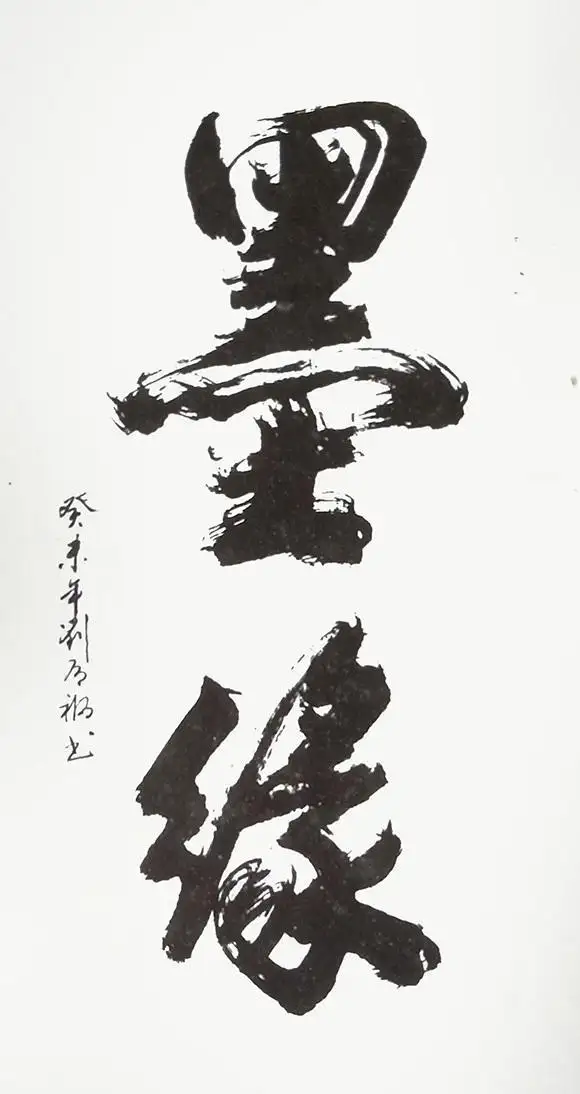 墨缘
癸未年刘有福书